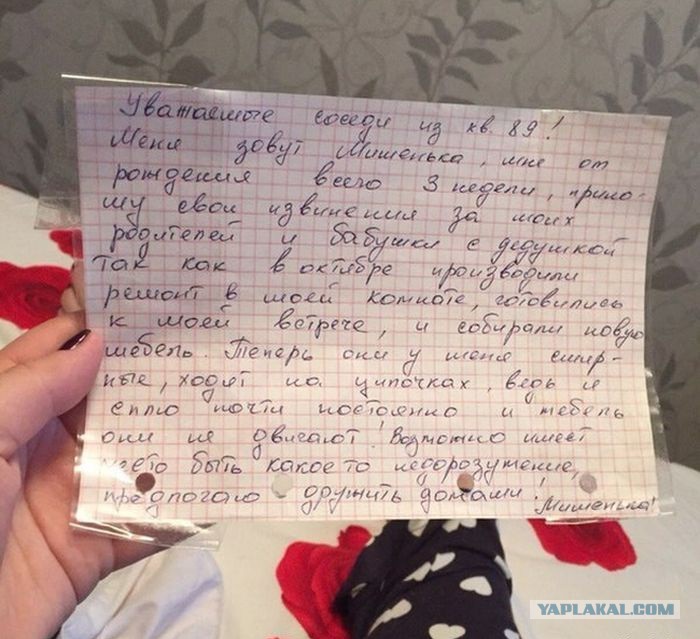 Уважаемые соседи из кв. 89!
Меня зовут Мишенька, мне от
рождения всего 3 недели, прино-
шу свои извинения за моих
родителей и бабушки с дедушкой
так как в октябре производили
ремонт в моей комнате, готовились
к моей встрече, и собирали новую
мебель. Теперь они у меня смир-
ные, ходят на ципочках, ведь я
сплю почти постоянно и мебель
они не двигают! Возможно имеет
место быть какое то недоразумение,
предлогаю дружить домами!
Мишенька!
YAPLAKAL.COM